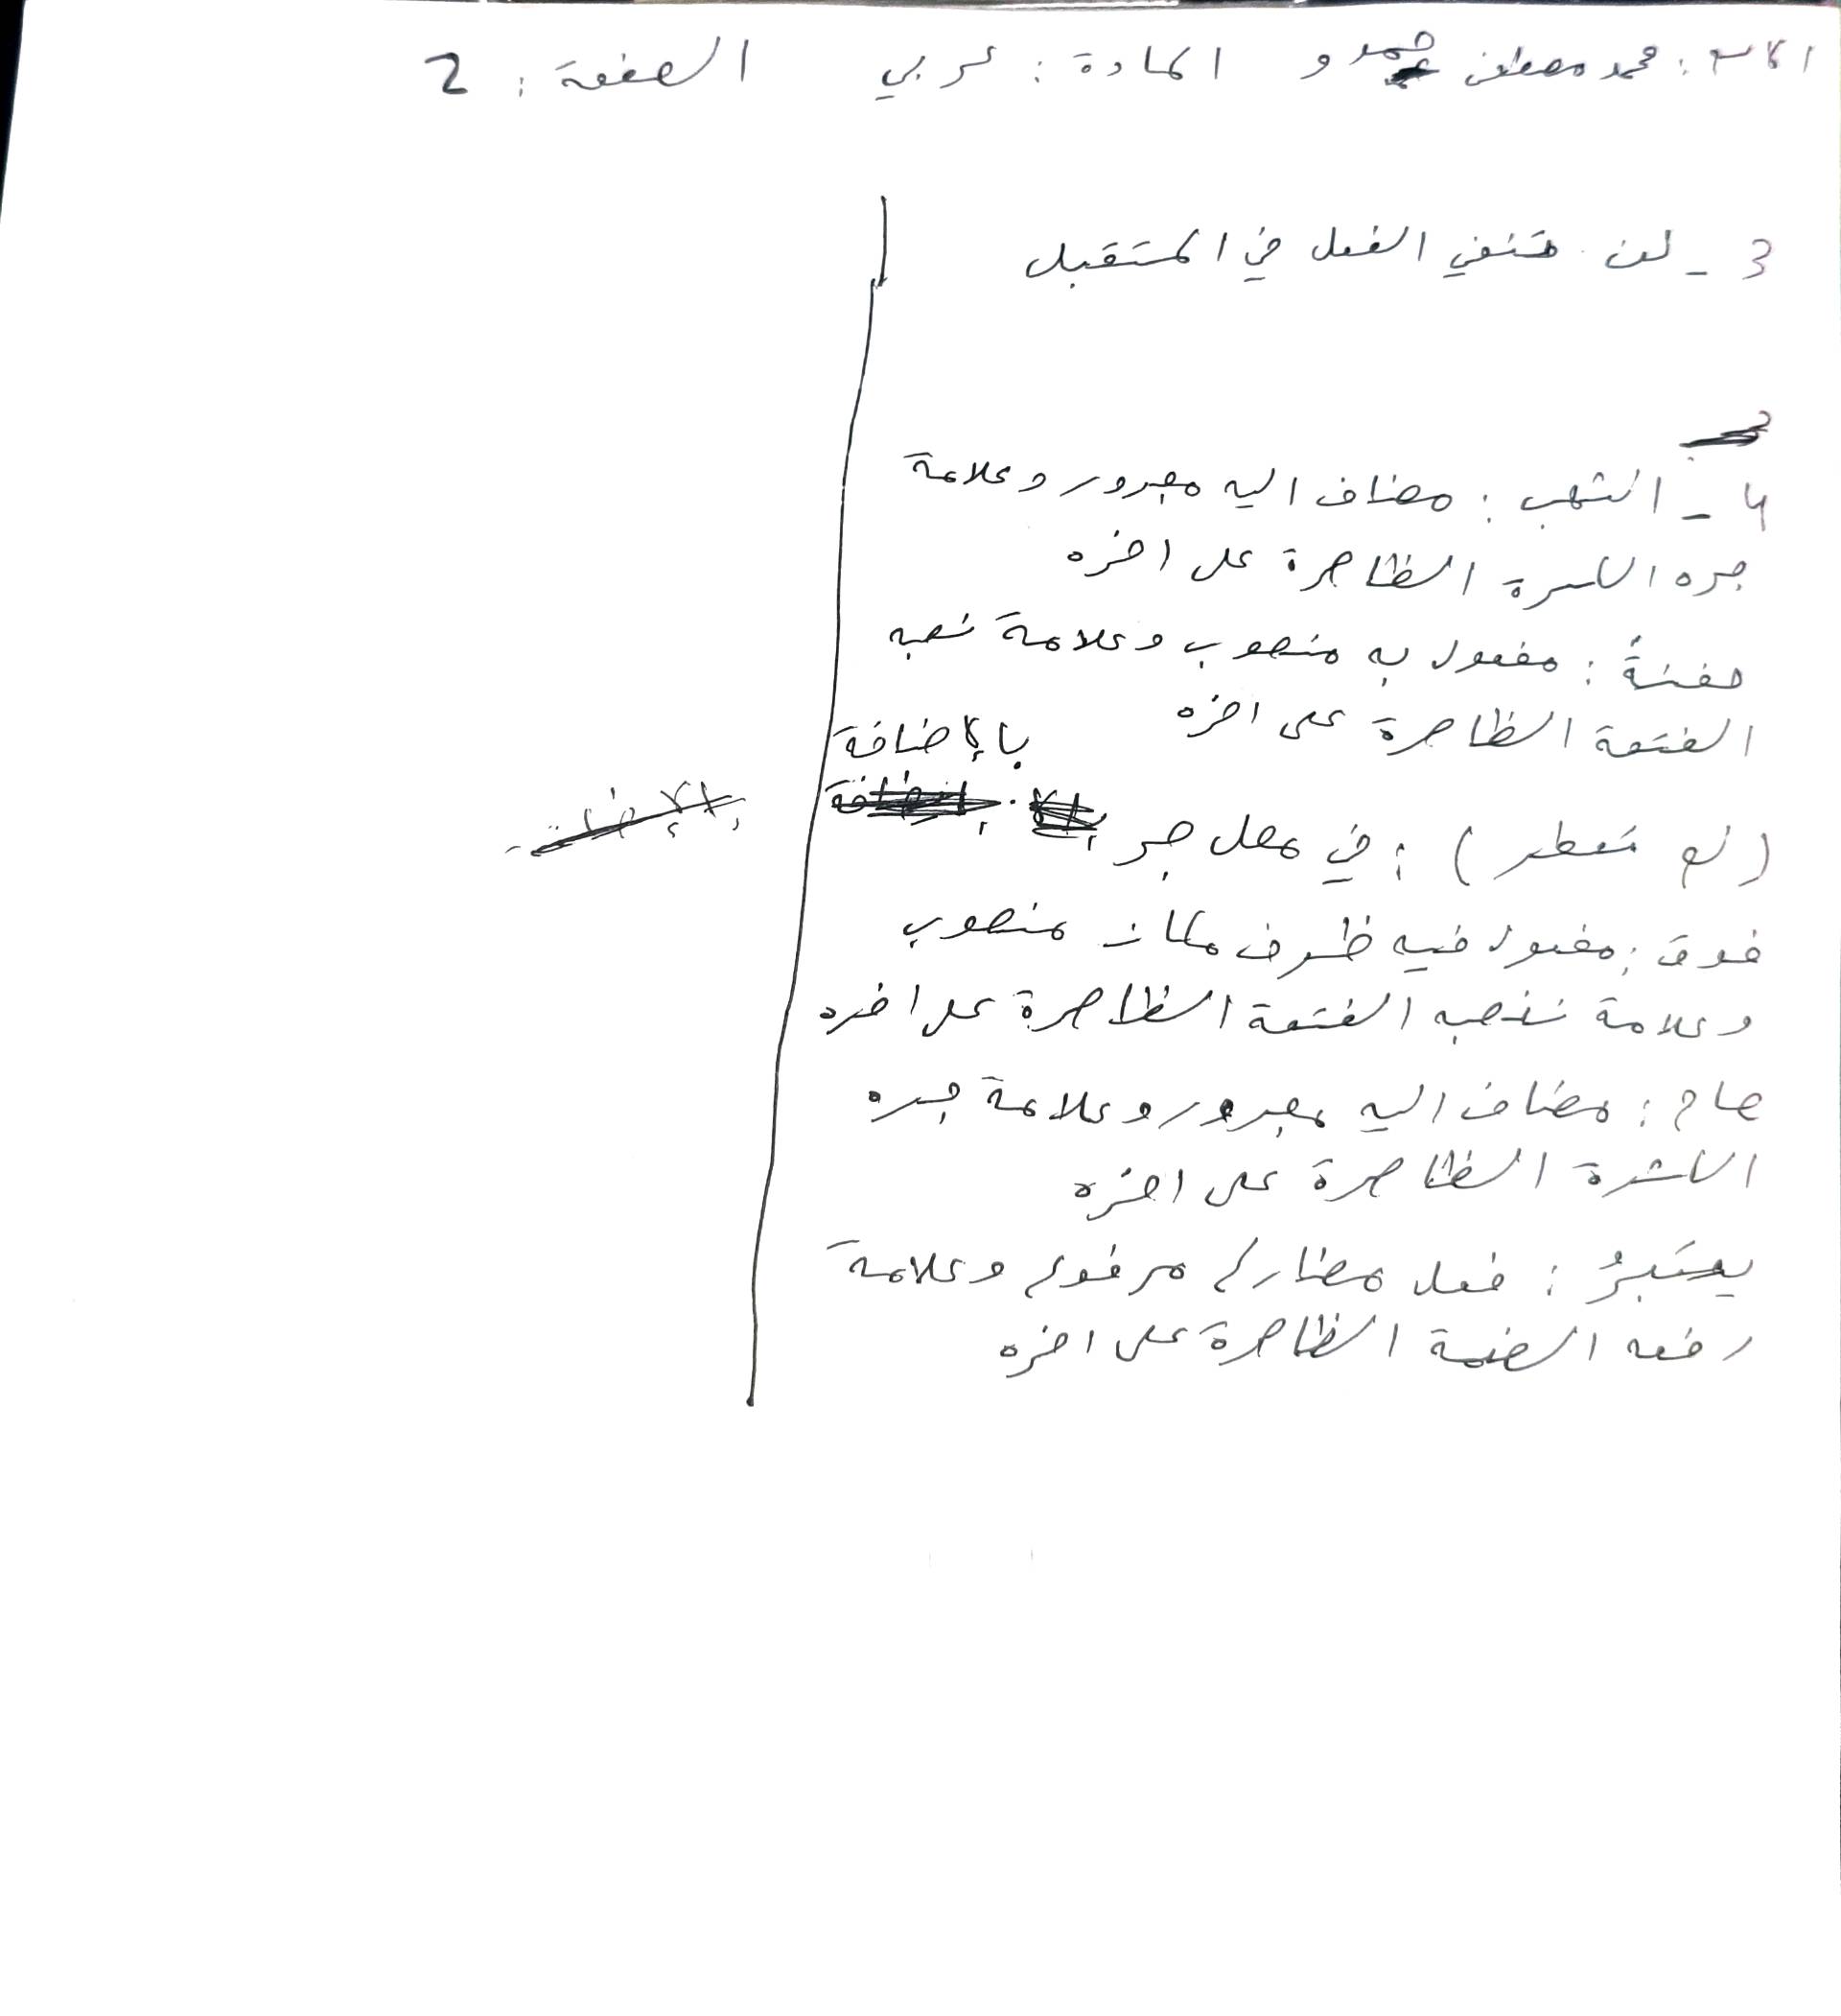 الاسم : محمد مصطفى حمدو المادة : عربي الصفحة : 2
3 - لن تنفي الفعل في المستقبل
4 - الشهب : مضاف اليه مجرور وعلامة
جره الكسرة الظاهرة على اخره
حفنةً : مفعول به منصوب وعلامة نصبه
الفتحة الظاهرة على اخره
(لم تمطر) : في محل جر بالإضافة
فوق : مفعول فيه ظرف مكان منصوب
وعلامة نصبه الفتحة الظاهرة على اخره
صاح : مضاف اليه مجرور وعلامة جره
الكسرة الظاهرة على اخره
فعل مضارع مرفوع وعلامة
رفعه الضمة الظاهرة على اخره